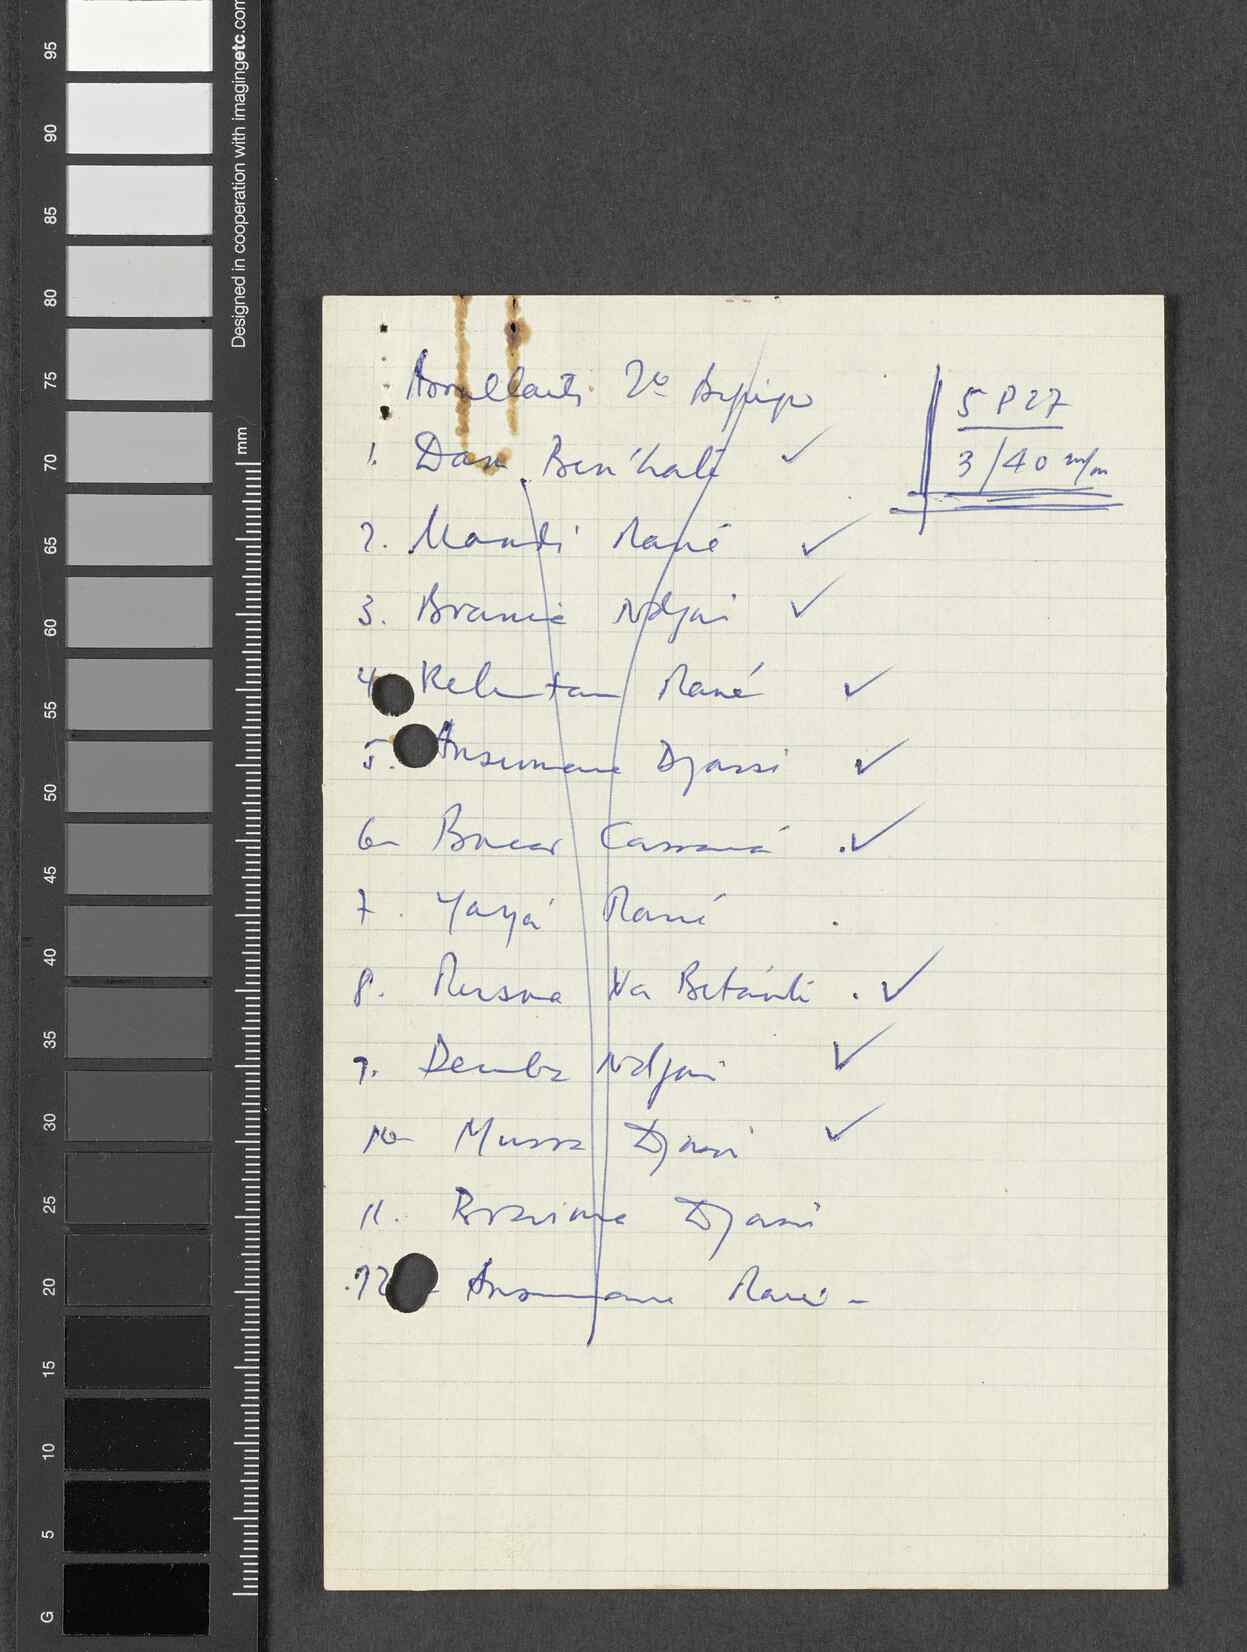 2º Grupo
5 P 27
3/40 m/m
1. Dan Ben'halé ✓
2. Mandi Mané ✓
3. Braima Ndjai ✓
4. Mané ✓
5. Ansumane Djassi ✓
6- Bucar Cassamá ✓
7. Yayá Mané
8. Na Betánti ✓
9. Demba Ndjai ✓
10- Mussa Djassi ✓
11. Braima Djassi
12 - Ansumane Mané -
Designed in cooperation with imagingetc.com
mm
95
90
85
80
75
70
65
60
55
50
45
40
35
30
25
20
15
10
5
G